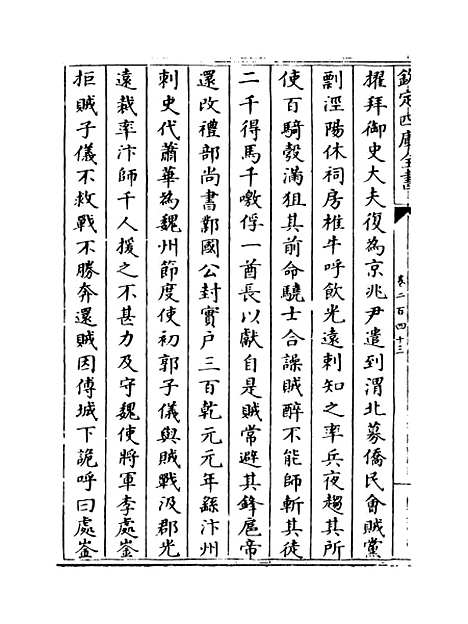 欽定四庫全書
卷二百四十三
擢拜御史大夫復為京兆尹遣到渭北募僑民會賊黨
剽涇陽休祠房椎牛呼飲光遠刺知之率兵夜趨其所
使百騎彀滿狙其前命驍士合譟賊醉不能師斬其徒
二千得馬千噭俘一酋長以獻自是賊常避其鋒扈帝
還改禮部尚書鄴國公封實户三百乾元元年繇汴州
刺史代蕭華為魏州節度使初郭子儀與賊戰汲郡光
遠裁率汴師千人援之不甚力及守魏使將軍李處崟
拒賊子儀不救戰不勝奔還賊因傅城下詭呼曰處崟